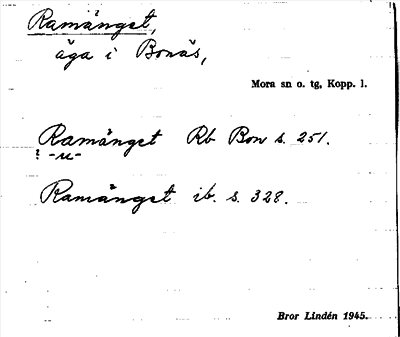 Ramängst,
äga i Bonäs,
Mora sn o. tg, Kopp. l.
Ramängst Rb Bon s. 251.
? -u-
Ramängst ib. s. 328.
Bror Lindén 1945.